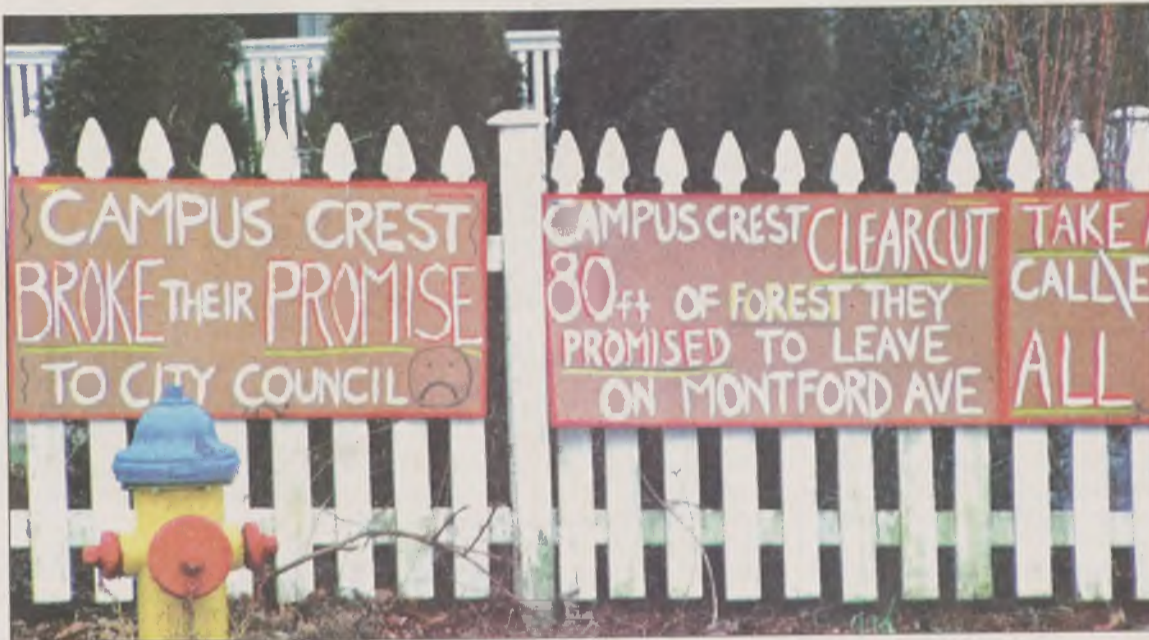 CAMPUS CREST
BROKE THEIR PROMISE
TO CITY COUNCIL
CAMPUS CREST CLEARCUT
80ft OF FOREST THEY
PROMISED TO LEAVE
ON MONTFORD AVE
TAKE
CALL
ALL